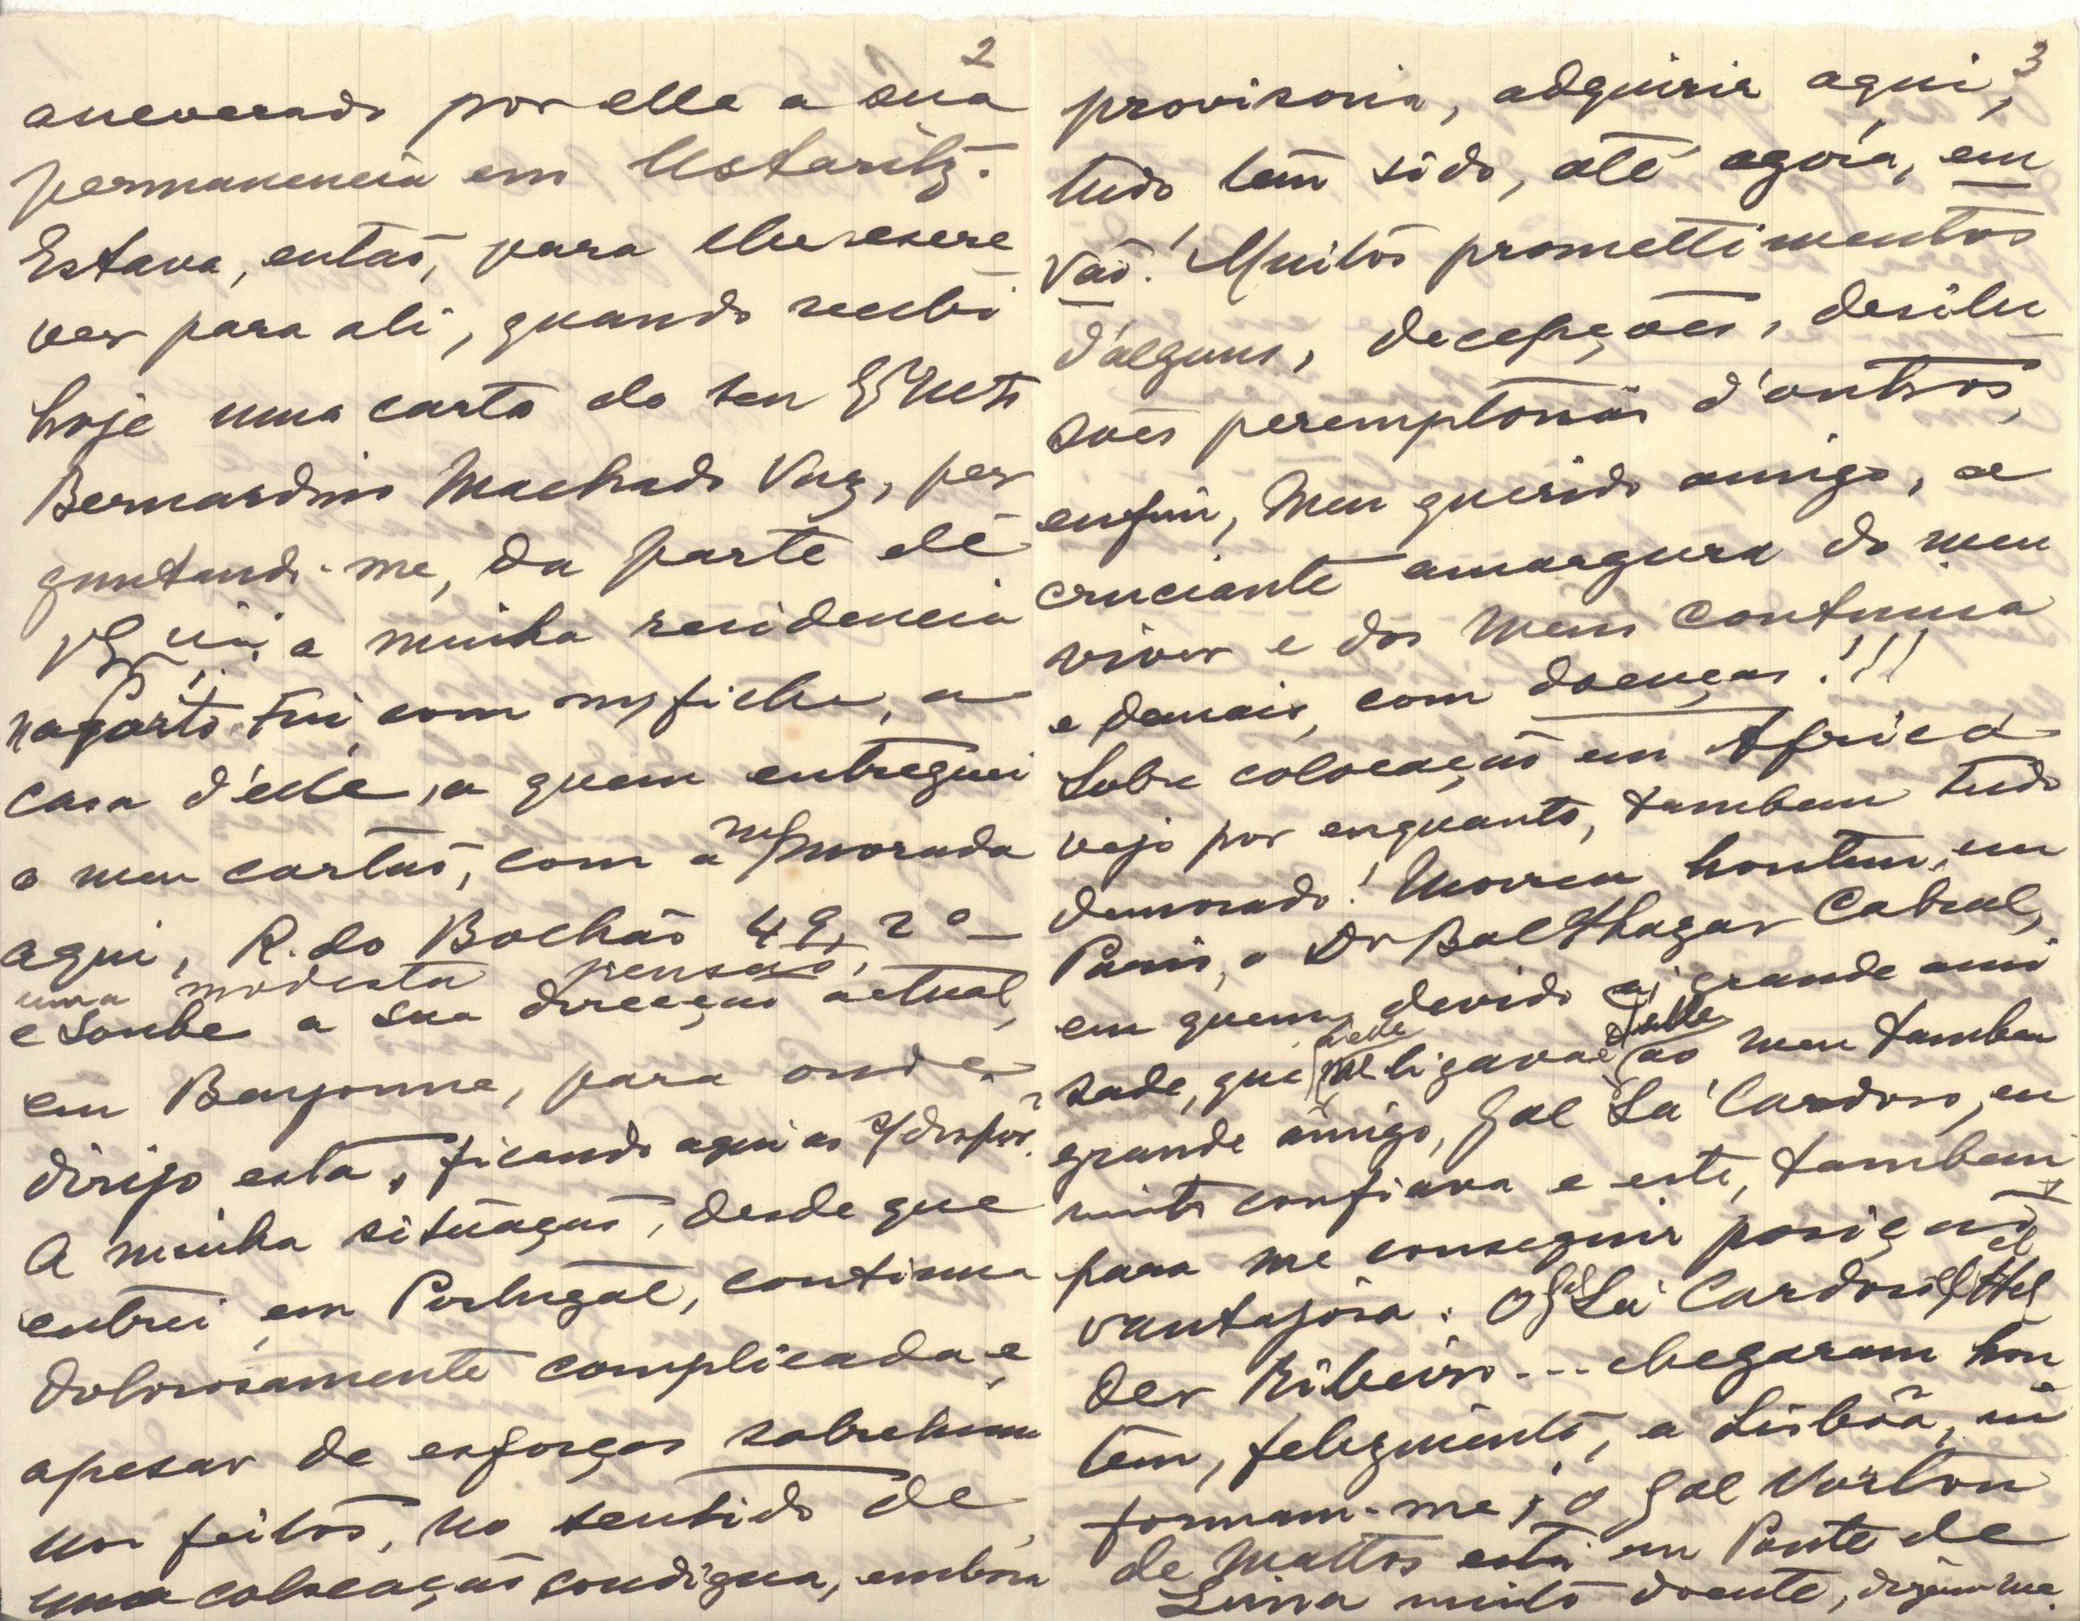 2
asseverado por elle a sua
permanencia em Ustaritz.
Estava, então, para lhe escre
ver para ali, quando recebi
hoje uma carta do seu Exmo Neto
Bernardino Machado Vaz, per
guntando-me, da parte de
V. Exia, a minha residencia
no Porto. Fui, com m/ filha, a
casa d'elle, a quem entreguei
o meu cartão, com a m/ morada
aqui, R. do Bolhão 49, 2º
uma modesta pensão,
e soube a sua direcção actual,
em Bayonne, para onde
dirijo esta, ficando aqui ao s/ dispôr.
A minha situação, desde que
entrei em Portugal, continua
dolorosamente complicada e
apesar de esforços sobrehuma
nos feitos, no sentido de
uma colocação condigna, embora
3
provisoria, adquirir aqui,
tudo tem sido, até agora, em
vão! Muitos promettimentos
d'alguns, decepções, desilu
sões peremptorias d'outros,
enfim, Meu querido amigo, a
cruciante amargura do meu
viver e dos meus continua
e demais, com doenças!!!
Sobre colocação em Africa
vejo por enquanto, tambem tudo
demorado! Morreu hontem, em
Paris, o Dr Balthazar Cabral,
em quem, devido á grande ami
sade, que ligava ao meu tambem
grande amigo, Gal Sá Cardoso, eu
muito confiava e este, tambem
para me conseguir posição
vantajosa. O Gal Sá Cardoso, Hel
der Ribeiro... chegaram hon
tem, felizmente, a Lisbôa, in
formam-me; o Gal Norton
de Mattos está em Ponte de
Lima muito doente, dizem-me.